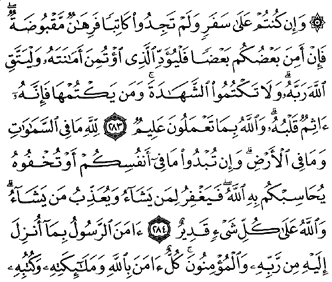 ۞ وَإِن كُنتُمْ عَلَىٰ سَفَرٍ وَلَمْ تَجِدُوا۟ كَاتِبًا فَرِهَٰنٌ مَّقْبُوضَةٌ ۖ
فَإِنْ أَمِنَ بَعْضُكُم بَعْضًا فَلْيُؤَدِّ ٱلَّذِى ٱؤْتُمِنَ أَمَٰنَتَهُۥ وَلْيَتَّقِ
ٱللَّهَ رَبَّهُۥ ۗ وَلَا تَكْتُمُوا۟ ٱلشَّهَٰدَةَ ۚ وَمَن يَكْتُمْهَا فَإِنَّهُۥٓ
ءَاثِمٌ قَلْبُهُۥ ۗ وَٱللَّهُ بِمَا تَعْمَلُونَ عَلِيمٌ ٢٨٣ لِّلَّهِ مَا فِى ٱلسَّمَٰوَٰتِ
وَمَا فِى ٱلْأَرْضِ ۗ وَإِن تُبْدُوا۟ مَا فِىٓ أَنفُسِكُمْ أَوْ تُخْفُوهُ
يُحَاسِبْكُم بِهِ ٱللَّهُ ۖ فَيَغْفِرُ لِمَن يَشَآءُ وَيُعَذِّبُ مَن يَشَآءُ ۗ
وَٱللَّهُ عَلَىٰ كُلِّ شَىْءٍ قَدِيرٌ ٢٨٤ ءَامَنَ ٱلرَّسُولُ بِمَآ أُنزِلَ
إِلَيْهِ مِن رَّبِّهِۦ وَٱلْمُؤْمِنُونَ ۚ كُلٌّ ءَامَنَ بِٱللَّهِ وَمَلَٰٓئِكَتِهِۦ وَكُتُبِهِۦ